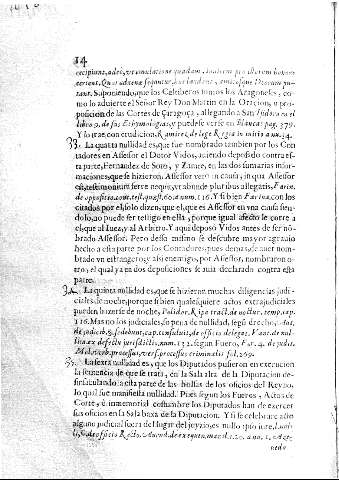 14
recipiunt, adeò, ut emulatione quadam, laudem pro iterum honore
zant. Suponiendo, que los Celtiberos somos los Aragoneses, co-
mo lo advierte el Señor Rey Don Martin en la Oracion, o pro-
posicion de las Cortes de Çaragoça, allegando a San Isidoro en el
libro 9. de sus Ethymologias, y puedese verse en Blancas pag. 379.
Y lo trae con erudicion, Ramirez, de lege Regia in initio a nu. 14.
33. La quarta nullidad es, que fue nombrado tambien por los Con
tadores en Assessor el Dotor Vidos, aviendo deposado contra es-
ta parte, Fernandez de Sous, y Zanue, en las dos sumarias infor-
maciones que se hizieron. Assessor vero in causa, in qua Assessor
est, testimonium ferre nequit, ut abunde pluribus allegatis, Farin.
de oppositis cont. test. quæst. 60. a num. 116. Y si bien Farina. con los
citados por el, solo dizen, que el que es Assessor en una causa sien-
dolo, no puede ser testigo en ella, porque igual afecto le corre a
el, que al Iuez, y al Arbitro. Y aqui deposò Vidos antes de ser nô-
brado Assessor. Pero desso mismo se descubre mayor agravio
hecho a esta parte por los Contadores, pues devian de aver nom-
brado un estrangero, y assi enemigo, por Assessor, nombraron o-
tro, el qual ya en dos deposiciones se avia declarado contra esta
parte.
34. La quinta nullidad es, que se hizieron muchas diligencias judi-
ciales de noche, porque si bien qualesquiere actos extrajudiciales
pueden hazerse de noche, Polidor. Ripa tract. de noctur. temp. cap.
116. Mas no los judiciales, so pena de nullidad, segù drecho, Aut.
de judicib. §. sedebunt, cap. consuluit, de officio delegat. Vant. de nul-
lit. ex defectu jurisdictis. num. 132. segun Fuero, For. 4. de judic.
Mol. verb. processus, vers. processus criminalis fol. 269.
35. La sexta nullidad es, que los Diputados pusieron en execucion
la sentencia de que se trata, en la Sala alta de la Diputacion de-
sinsiculando a esta parte de las bolsas de los oficios del Reyno,
lo qual fue manifiesta nullidad. Pues segun los Fueros, Actos de
Corte, è inmemorial costumbre los Diputados han de exercer
sus oficios en la Sala baxa de la Diputacion. Y si se celebrare acto
alguno judicial fuera del lugar del juyzio, es nullo ipso iure,
nedo